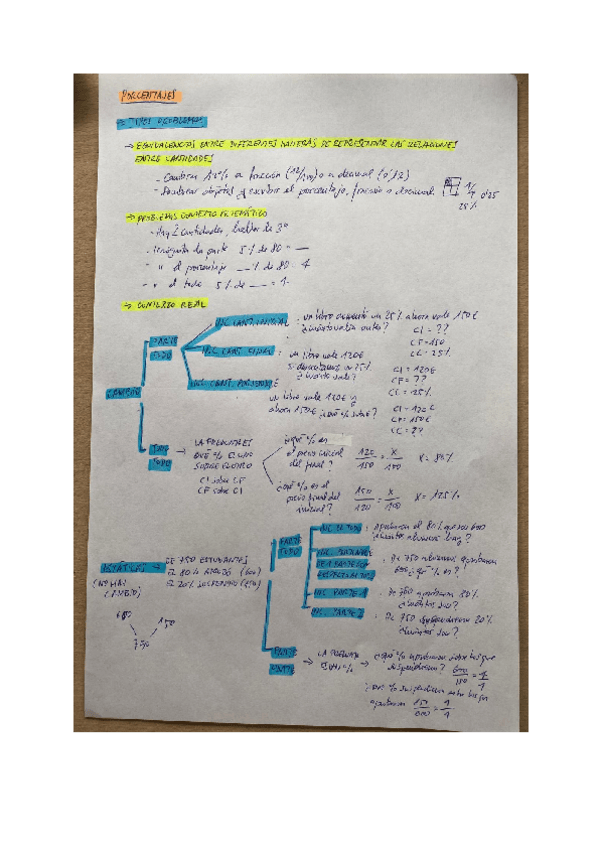 PORCENTAJES
→ TIPOS PROBLEMAS
→ EQUIVALENCIAS ENTRE DIFERENTES MANERAS DE REPRESENTAR LAS RELACIONES
ENTRE CANTIDADES
- Cambiar 12% a fracción (12/100) o a decimal (0'12)
- Sombrear objetos y escribir el porcentaje, fracción o decimal 1/4 0'25
25%
→ PROBLEMAS CONTEXTO MATEMÁTICO
- Hay 2 cantidades, hallar la 3ª
- Incógnita la parte 5% de 80 = __
- " el porcentaje __% de 80 = 4
- " el todo 5% de __ = 4
→ CONTEXTO REAL
CAMBIO
PARTE
TODO
INC. CANT. INICIAL : un libro aumentó un 25% ahora vale 150€
¿cuánto valía antes?
CI = ??
CF = 150
CC = 25%
INC. CANT. FINAL : un libro vale 120€
si aumentamos un 25%
¿cuánto vale?
CI = 120€
CF = ??
CC = 25%
INC. CANT. PORCENTAJE
un libro vale 120€ y
ahora 150€ ¿qué % sube?
CI = 120€
CF = 150€
CC = ??
TODO
TODO
→ LA
QUÉ % ES UNO
SOBRE EL OTRO
CI sobre CF
CF sobre CI
¿qué % es
el precio inicial
del final?
120/150 = X/100
X = 80%
¿qué % es el
precio final del
inicial?
150/120 = X/100
X = 125%
ESTÁTICAS →
(NO HAY
CAMBIO)
DE 750 ESTUDIANTES
EL 80% APROBÓ (600)
EL 20% SUSPENDIÓ (150)
600
150
750
PARTE
TODO
INC. EL TODO : aprobaron el 80% que son 600
¿cuántos alumnos hay?
INC. PORCENTAJE
: De 750 alumnos aprobaron
600 ¿qué % es?
INC. PARTE 1 : De 750 aprobaron 80%
¿cuántos son?
INC. PARTE 2 : De 750 suspendieron 20%
¿cuántos son?
PARTE
PARTE
→ LA PREGUNTA
ES UN %
→ ¿qué % aprobaron sobre los que
suspendieron? 600/150 = 4/1
¿qué % suspendieron sobre los que
aprobaron 150/600 = 1/4